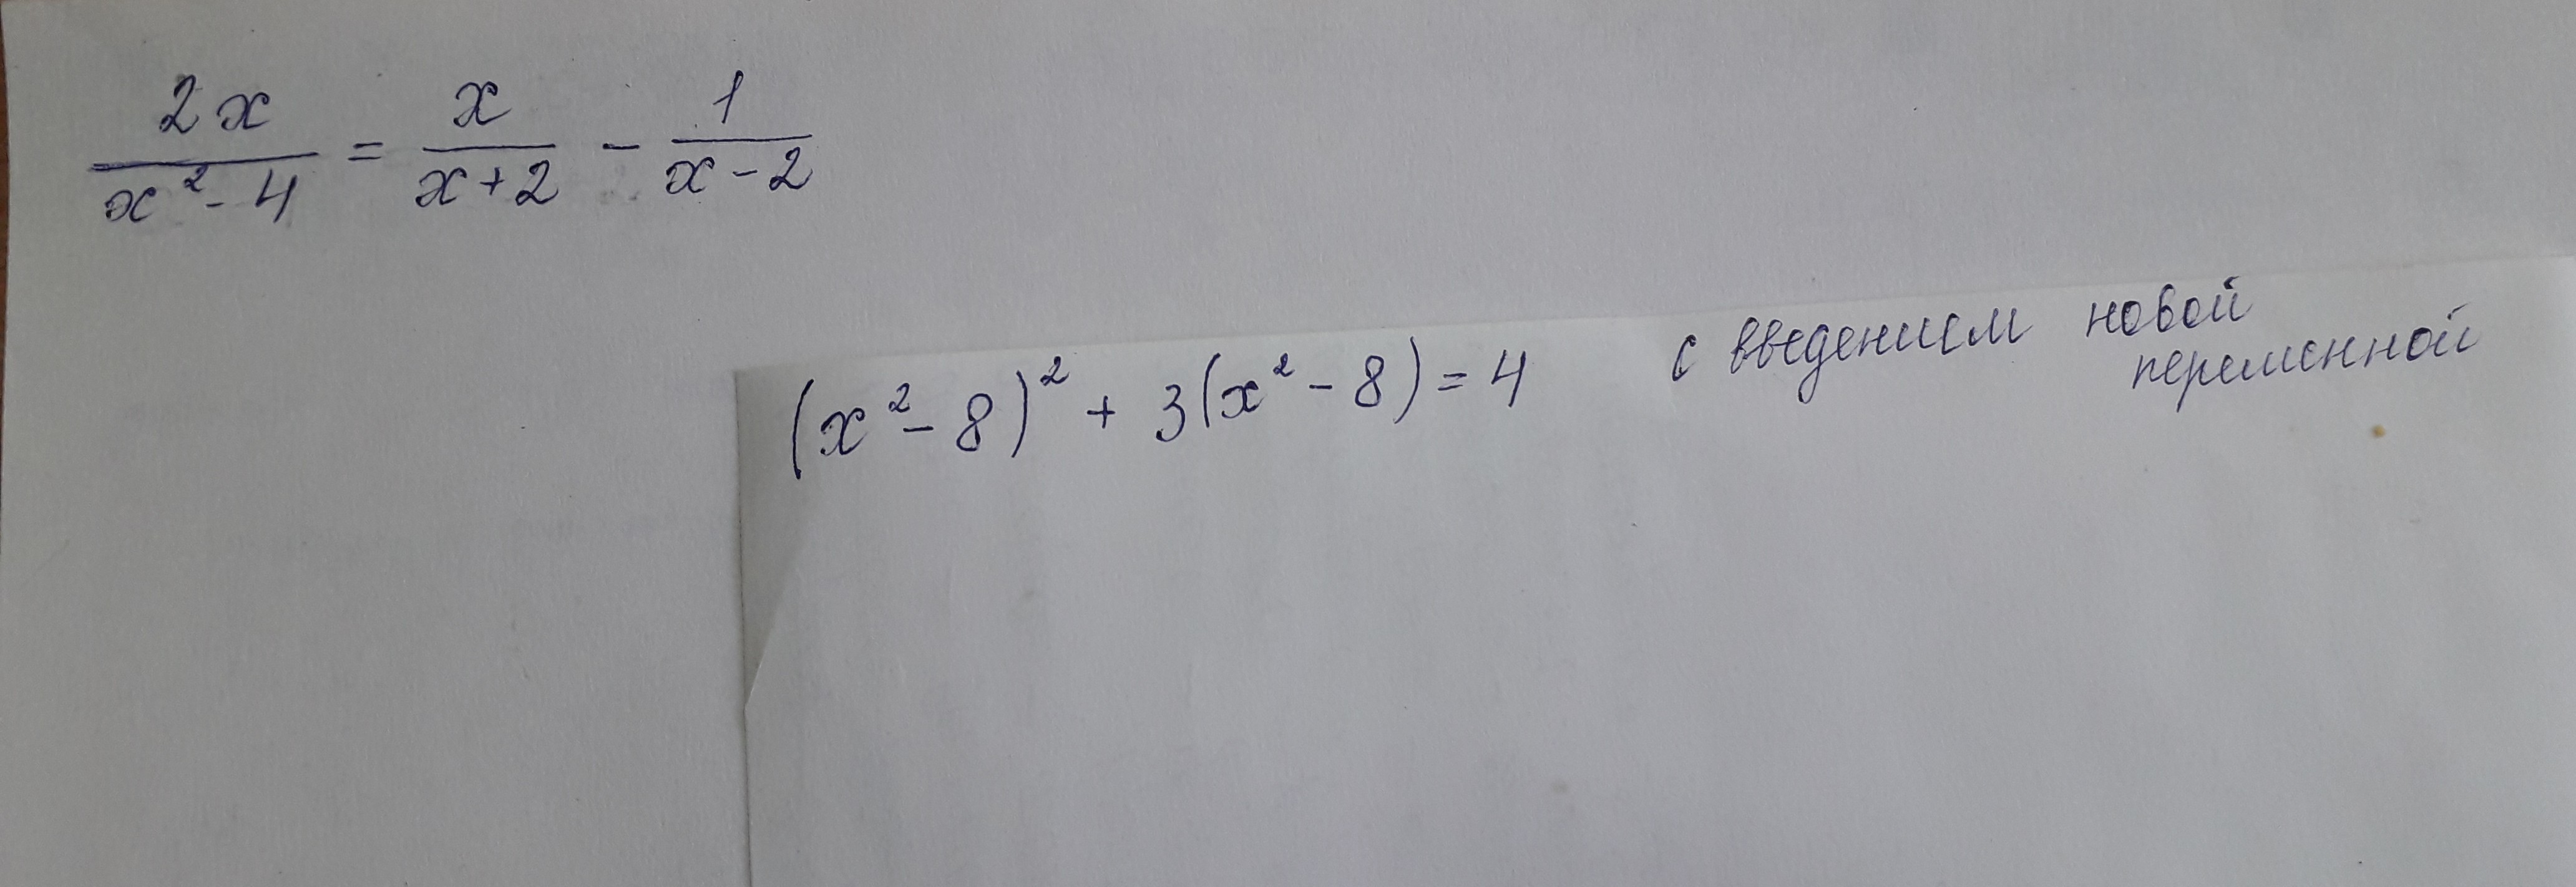 2x/(x² - 4) = x/(x+2) - 1/(x-2)
(x² - 8)² + 3(x² - 8) = 4 с введением новой
переменной